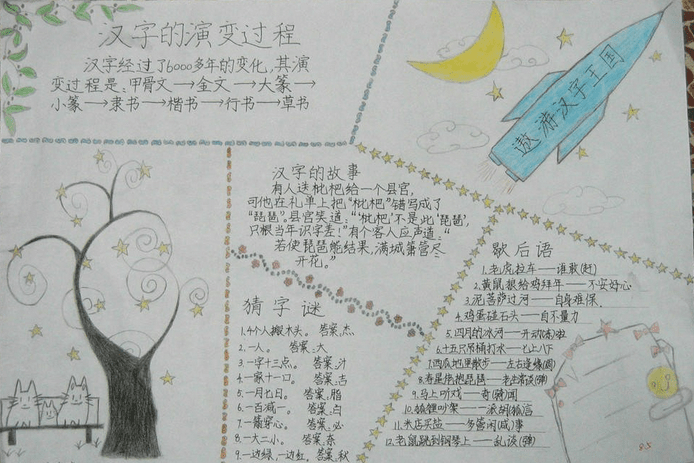 汉字的演变过程
汉字经过了6000多年的变化,其演
变过程是:甲骨文→金文→大篆→
小篆→隶书→楷书→行书→草书
遨游汉字王国
汉字的故事
有人送枇杷给一个县官,
可他在礼单上把"枇杷"错写成了
"琵琶"。县官笑道:"'枇杷'不是此'琵琶',
只恨当年识字差!"有个客人应声道:"
若使琵琶能结果,满城箫管尽
开花。"
猜字谜
1.4个人搬木头。 答案:杰
2.一人。 答案:大
3.一字十三点。 答案:汁
4.一家十一口。 答案:吉
5.一月七日。 答案:脂
6.一百减一。 答案:白
7.一箭穿心。 答案:必
8.一大二小。 答案:奈
9.一边绿,一边红。答案:秋
歇后语
1.老虎拉车——谁敢(赶)
2.黄鼠狼给鸡拜年——不安好心
3.泥菩萨过河——自身难保.
4.鸡蛋碰石头——自不量力
5.四月的冰河——开动(冻)啦
6.十五只吊桶打水——七上八下
7.西瓜地里散步——左右逢缘(圆)
8.寿星抱琵琶——老生常谈(弹)
9.马上听戏——奇(骑)闻
10.狐狸吵架——一派胡
11.米店买盐——多管闲(咸)事
12.老鼠跳到钢琴上——乱谈(弹)